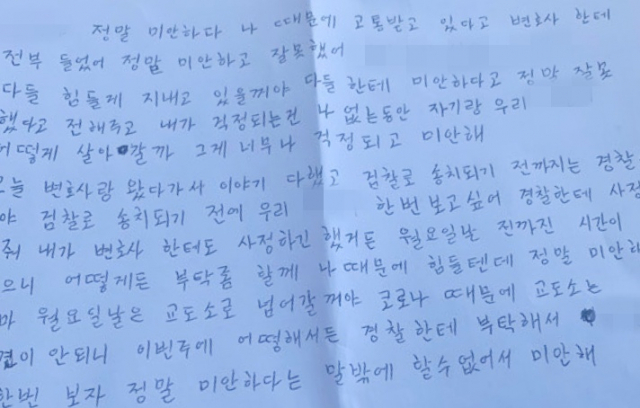 정말 미안하다 나 때문에 고통받고 있다고 변호사 한테
전부 들었어 정말 미안하고 잘못했어
다들 힘들게 지내고 있을꺼야 다들 한테 미안하다고 정말 잘못
했다고 전해주고 내가 걱정되는건 나 없는동안 자기랑 우리
어떻게 살아갈까 그게 너무나 걱정되고 미안해
오늘 변호사랑 왔다가서 이야기 다했고 검찰로 송치되기 전까지는 경찰
야 검찰로 송치되기 전에 우리 한번 보고싶어 경찰한테 사정
줘 내가 변호사 한테도 사정하긴 했거든 월요일날 전까진 시간이
으니 어떻게든 부탁좀 할께 나때문에 힘들텐데 정말 미안하
마 월요일날은 교도소로 넘어갈꺼야 코로나 때문에 교도소는
견이 안되니 이번주에 어떻해서든 경찰한테 부탁해서
한번 보자 정말 미안하다는 말밖에 할수없어서 미안해